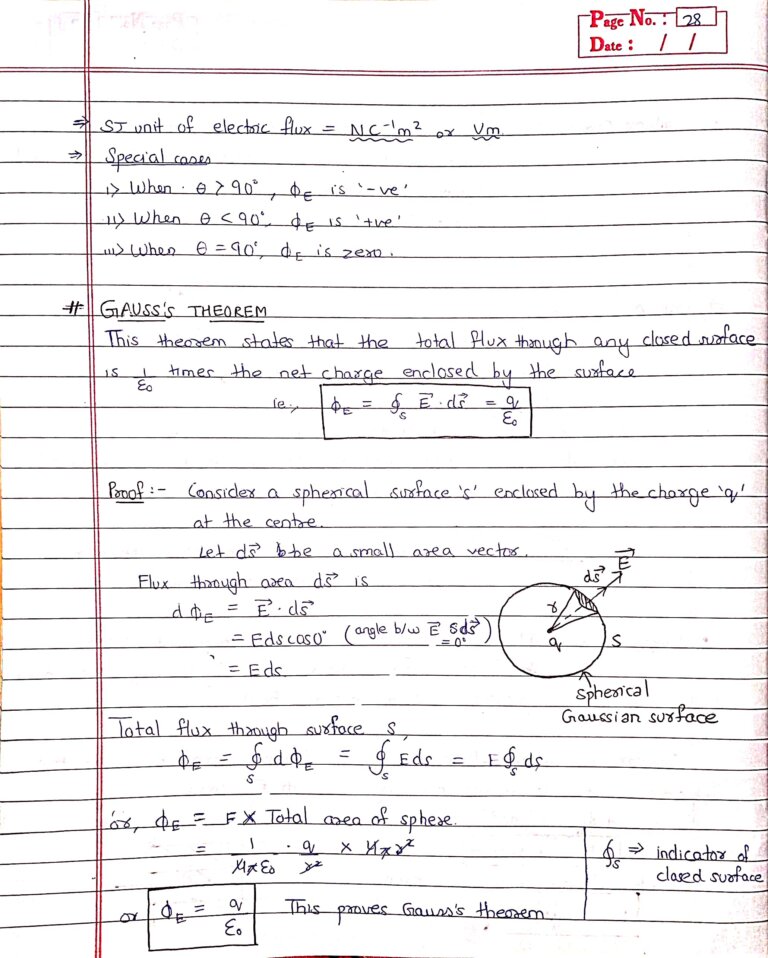 Page No.: 28
Date: / /
⇒ SI unit of electric flux = NC⁻¹m² or Vm
⇒ Special cases
i> When θ > 90°, ϕE is '-ve'
ii> When θ < 90°, ϕE is '+ve'
iii> When θ = 90°, ϕE is zero.
# GAUSS'S THEOREM
This theorem states that the total flux through any closed surface
is 1/ε₀ times the net charge enclosed by the surface
ie., ϕE = ∮s E⃗ · ds⃗ = q/ε₀
Proof :- Consider a spherical surface 's' enclosed by the charge 'q'
at the centre.
Let ds⃗ be a small area vector.
Flux through area ds⃗ is
dϕE = E⃗ · ds⃗
= Eds cos0° (angle b/w E⃗ & ds⃗ = 0°)
= Eds
E⃗
ds⃗
r
q
S
Spherical
Gaussian surface
Total flux through surface S,
ϕE = ∮s dϕE = ∮s Eds = E∮s ds
or, ϕE = E × Total area of sphere.
= 1/4πε₀ · q/r² × 4πr²
or ϕE = q/ε₀ This proves Gauss's theorem
∮s ⇒ indicator of
closed surface